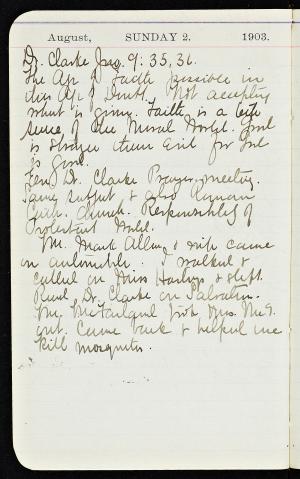 August, SUNDAY 2. 1903.
Dr. Clarke Jno. 9: 35, 36.
The Age of Faith possible in
this Age of Doubt. Not accepting
what is given. Faith is a
sense of the Moral World. Good
is stronger than Evil for God
is Good.
Eve. Dr. Clarke Prayer-meeting.
Same subject & also Roman
Cath. Church. Responsibility of
Protestant World.
Mr. Mark Allen & wife came
in automobile. I walked &
called on Miss & slept.
Read Dr. Clarke on Salvation.
Mr. McFarland took Mrs. McF.
out. Came back & helped me
kill mosquitos.